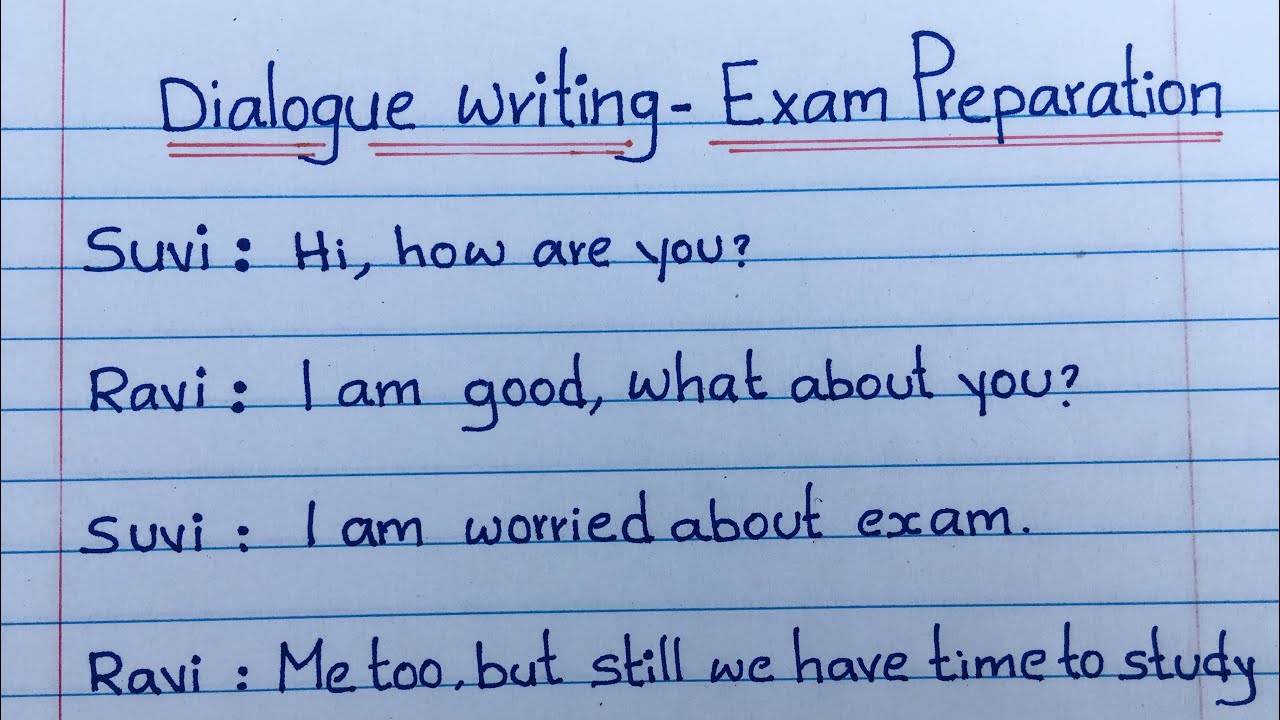 Dialogue writing- Exam Preparation
Suvi: Hi, how are you?
Ravi: I am good, what about you?
Suvi: I am worried about exam.
Ravi: Me too, but still we have time to study